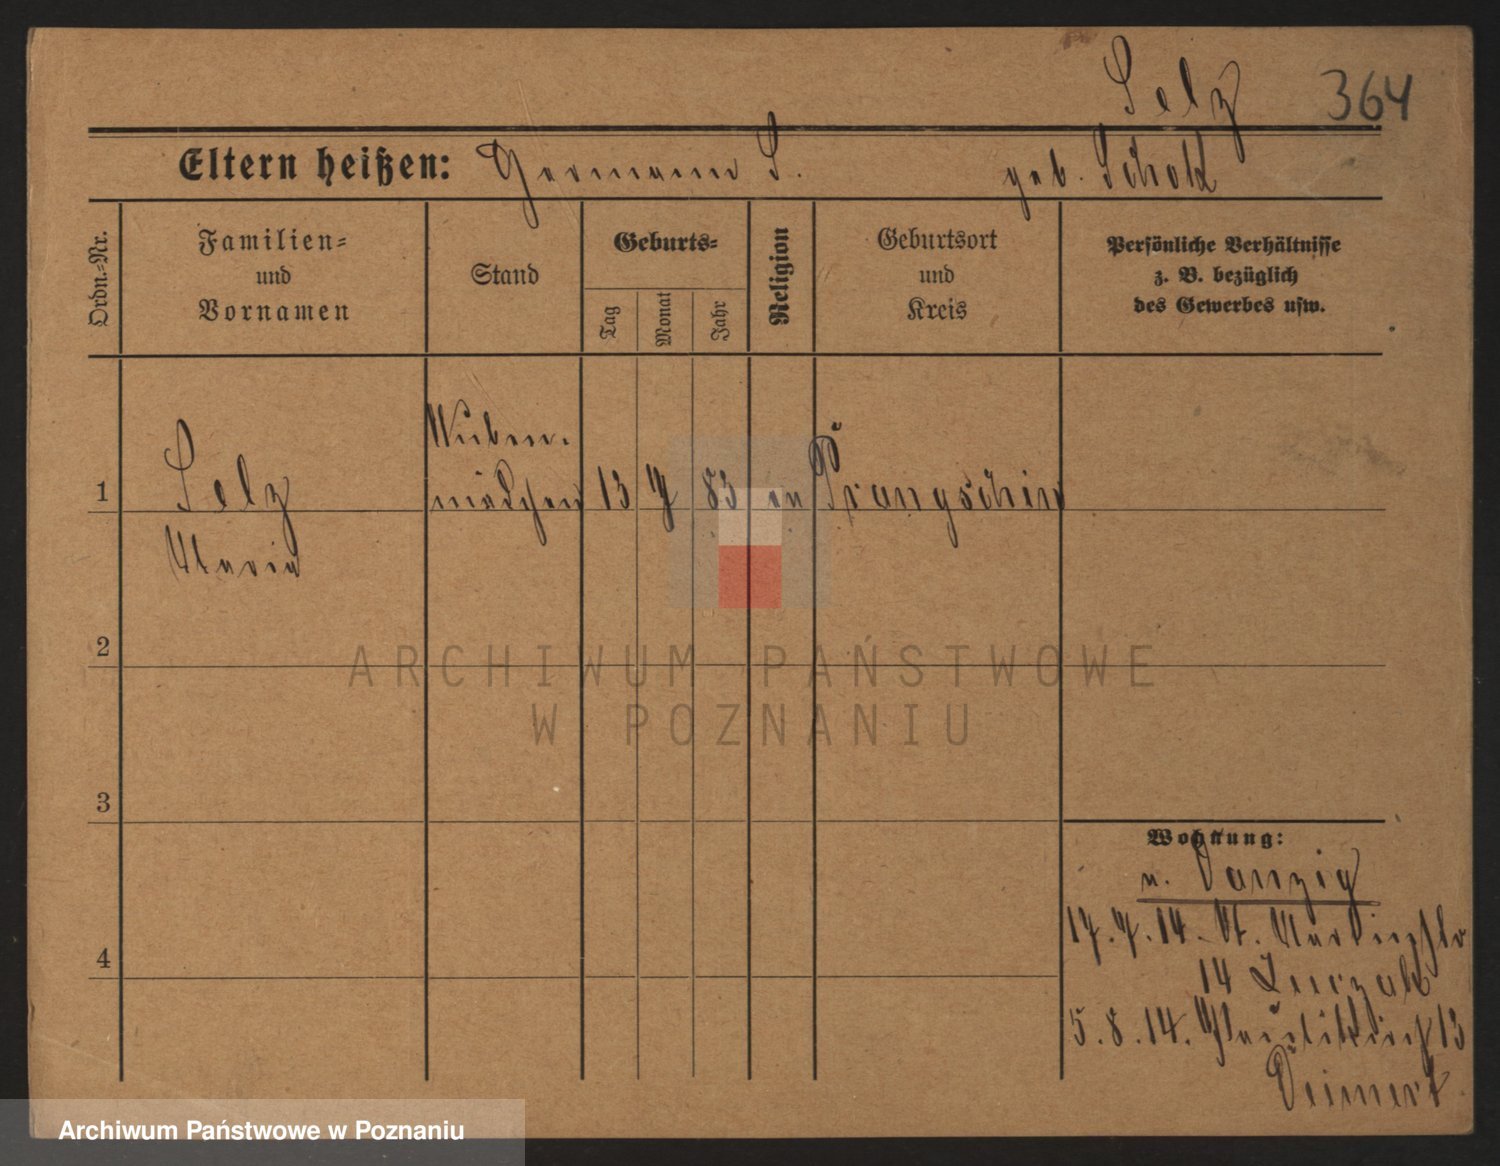 Selz 364
Eltern heißen: Hermann S. geb. Scholz
Ordn.-Nr.
Familien=
und
Vornamen
Stand
Geburts=
Tag
Monat
Jahr
Religion
Geburtsort
und
Kreis
Persönliche Verhältnisse
z. B. bezüglich
des Gewerbes usw.
1 Selz
Maria
Stuben-
mädchen
13 7 83 ev Prangschin
2
3
4
Wohnung:
n. Danzig
17.7.14. St. Martinstr
14
5.8.14. 13
ARCHIWUM PAŃSTWOWE
W POZNANIU
Archiwum Państwowe w Poznaniu